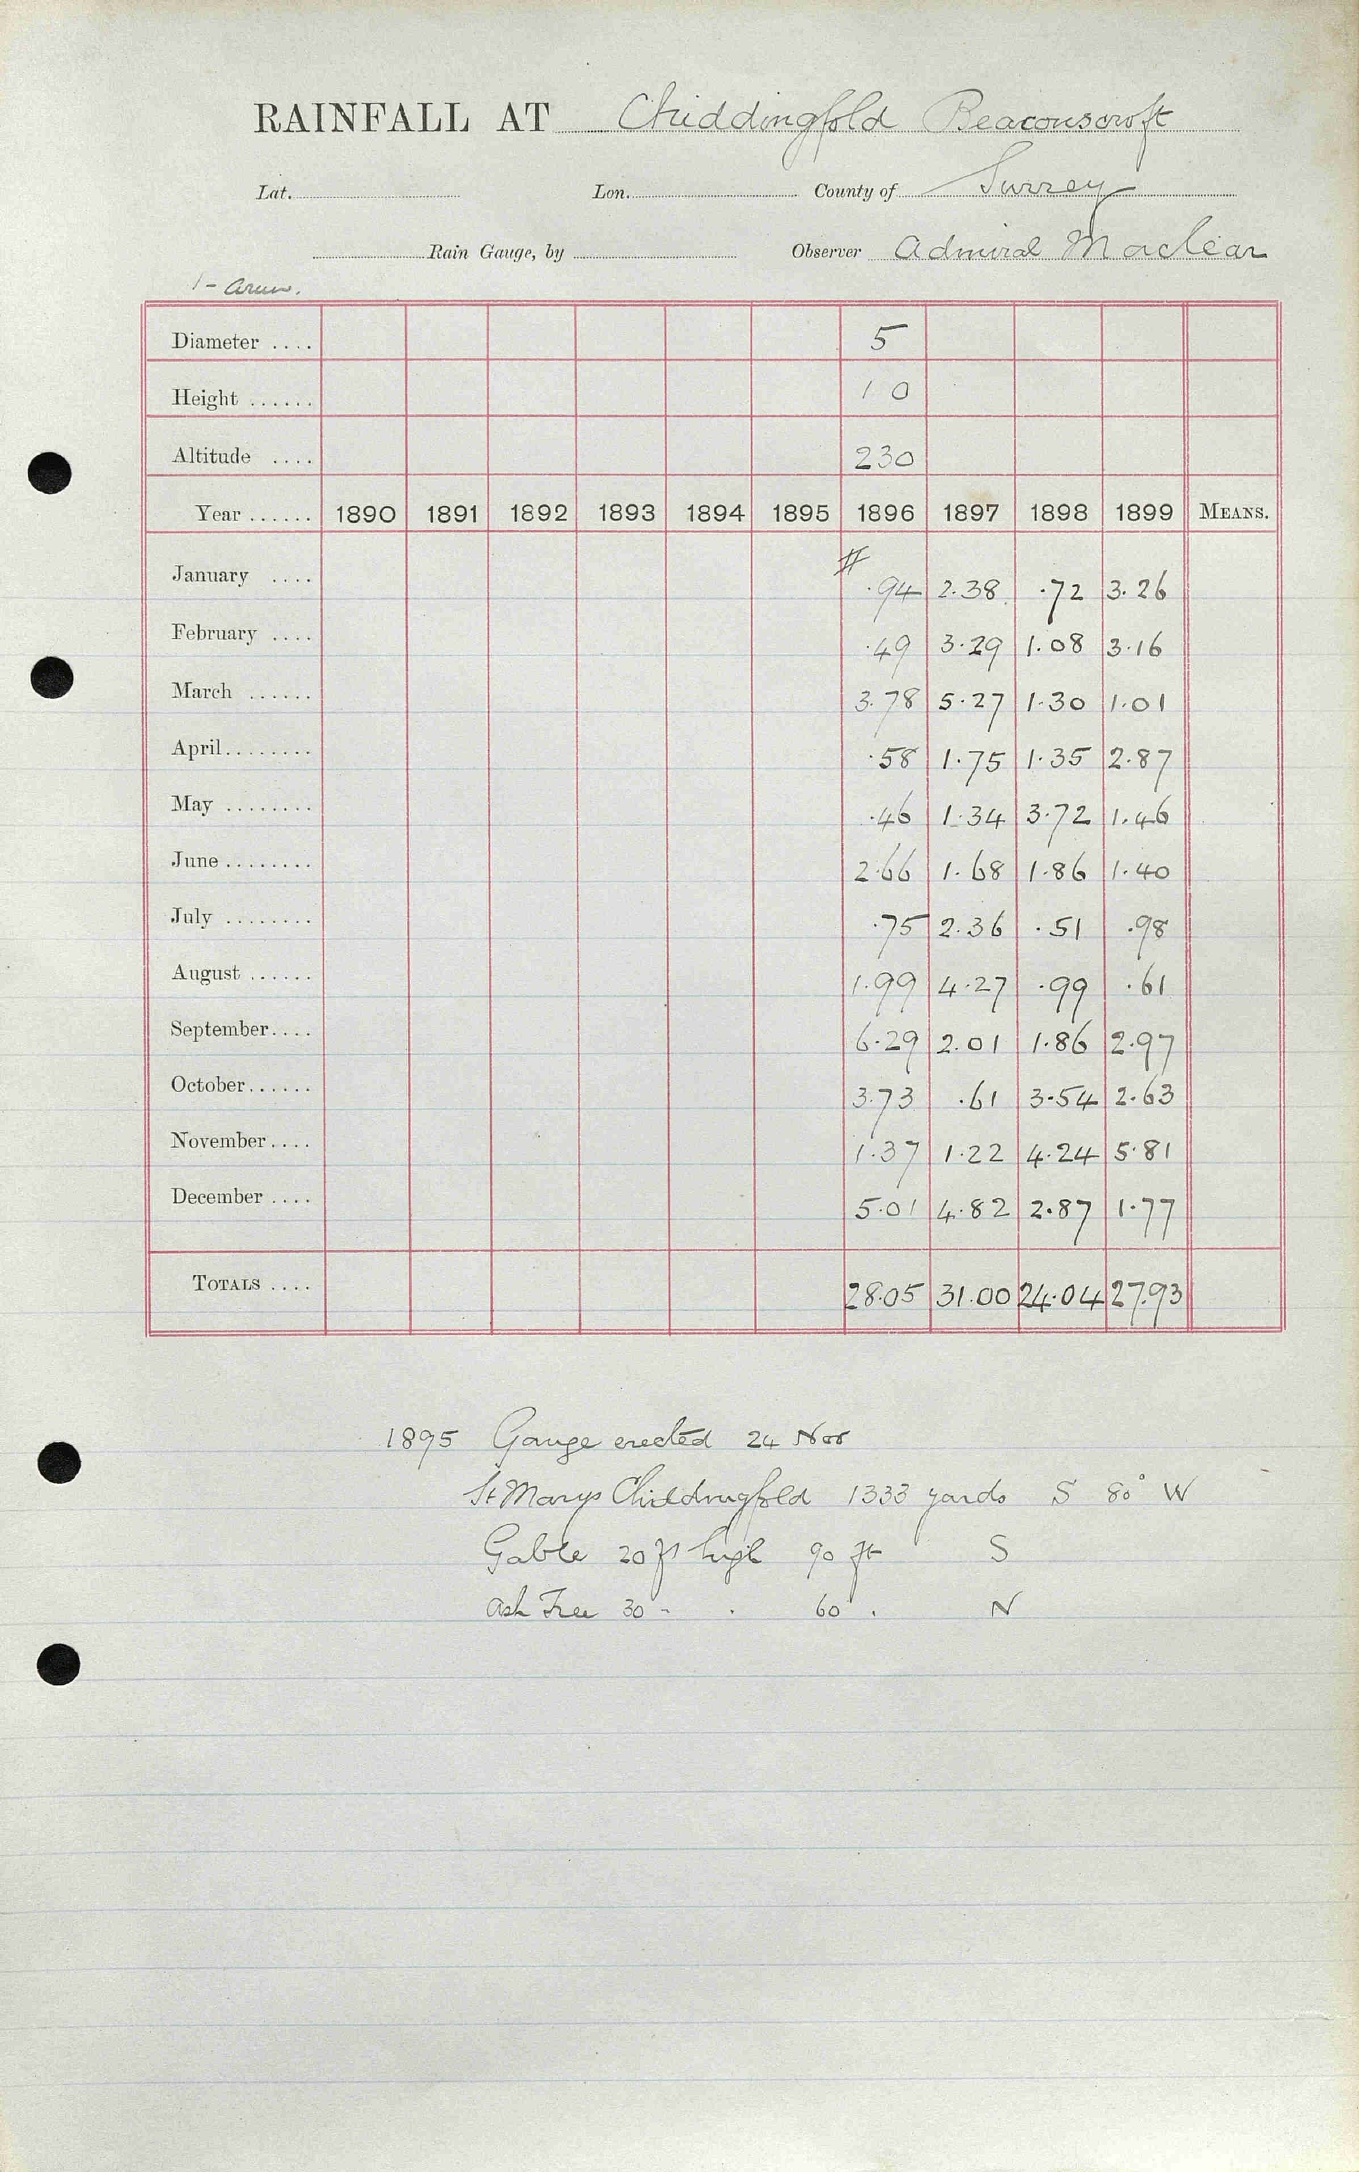 RAINFALL AT Chiddingfold Beaconscroft
Lat. Lon. County of Surrey
Rain Gauge, by Observer Admiral Maclear
1 - Arun.
Diameter .... 5
Height ...... 1 0
Altitude .... 230
Year ...... 1890 1891 1892 1893 1894 1895 1896 1897 1898 1899 MEANS.
#
January .... .94 2.38 .72 3.26
February .... .49 3.29 1.08 3.16
March ...... 3.78 5.27 1.30 1.01
April ........ .58 1.75 1.35 2.87
May ........ .46 1.34 3.72 1.46
June ........ 2.66 1.68 1.86 1.40
July ........ .75 2.36 .51 .98
August ...... 1.99 4.27 .99 .61
September .... 6.29 2.01 1.86 2.97
October ...... 3.73 .61 3.54 2.63
November .... 1.37 1.22 4.24 5.81
December .... 5.01 4.82 2.87 1.77
TOTALS .... 28.05 31.00 24.04 27.93
1895 Gauge erected 24 Nov
St Marys Chiddingfold 1333 yards S 80° W
Gable 20 ft high 90 ft S
Ash Tree 30 - . 60 . N